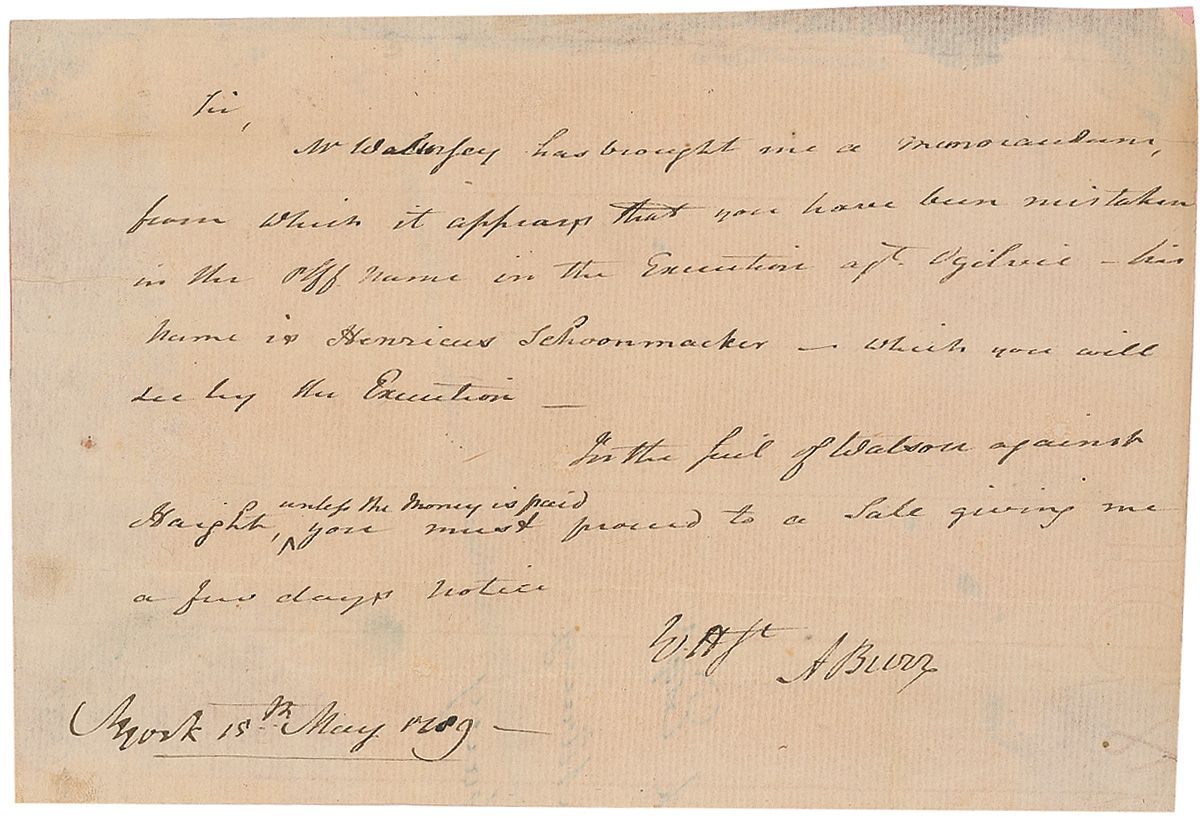 Sir,
Mr Woolsey has brought me a memorandum,
from which it appears that you have been mistaken
in the Plff. name in the Execution agt Ogilvie – his
name is Henricus Schoonmacker – which you will
see by the Execution –
In the suit of Watson against
unless the Money is paid
Haight, ^ you must proceed to a Sale giving me
a few days notice
A Burr
NYork 18th May 1789 –